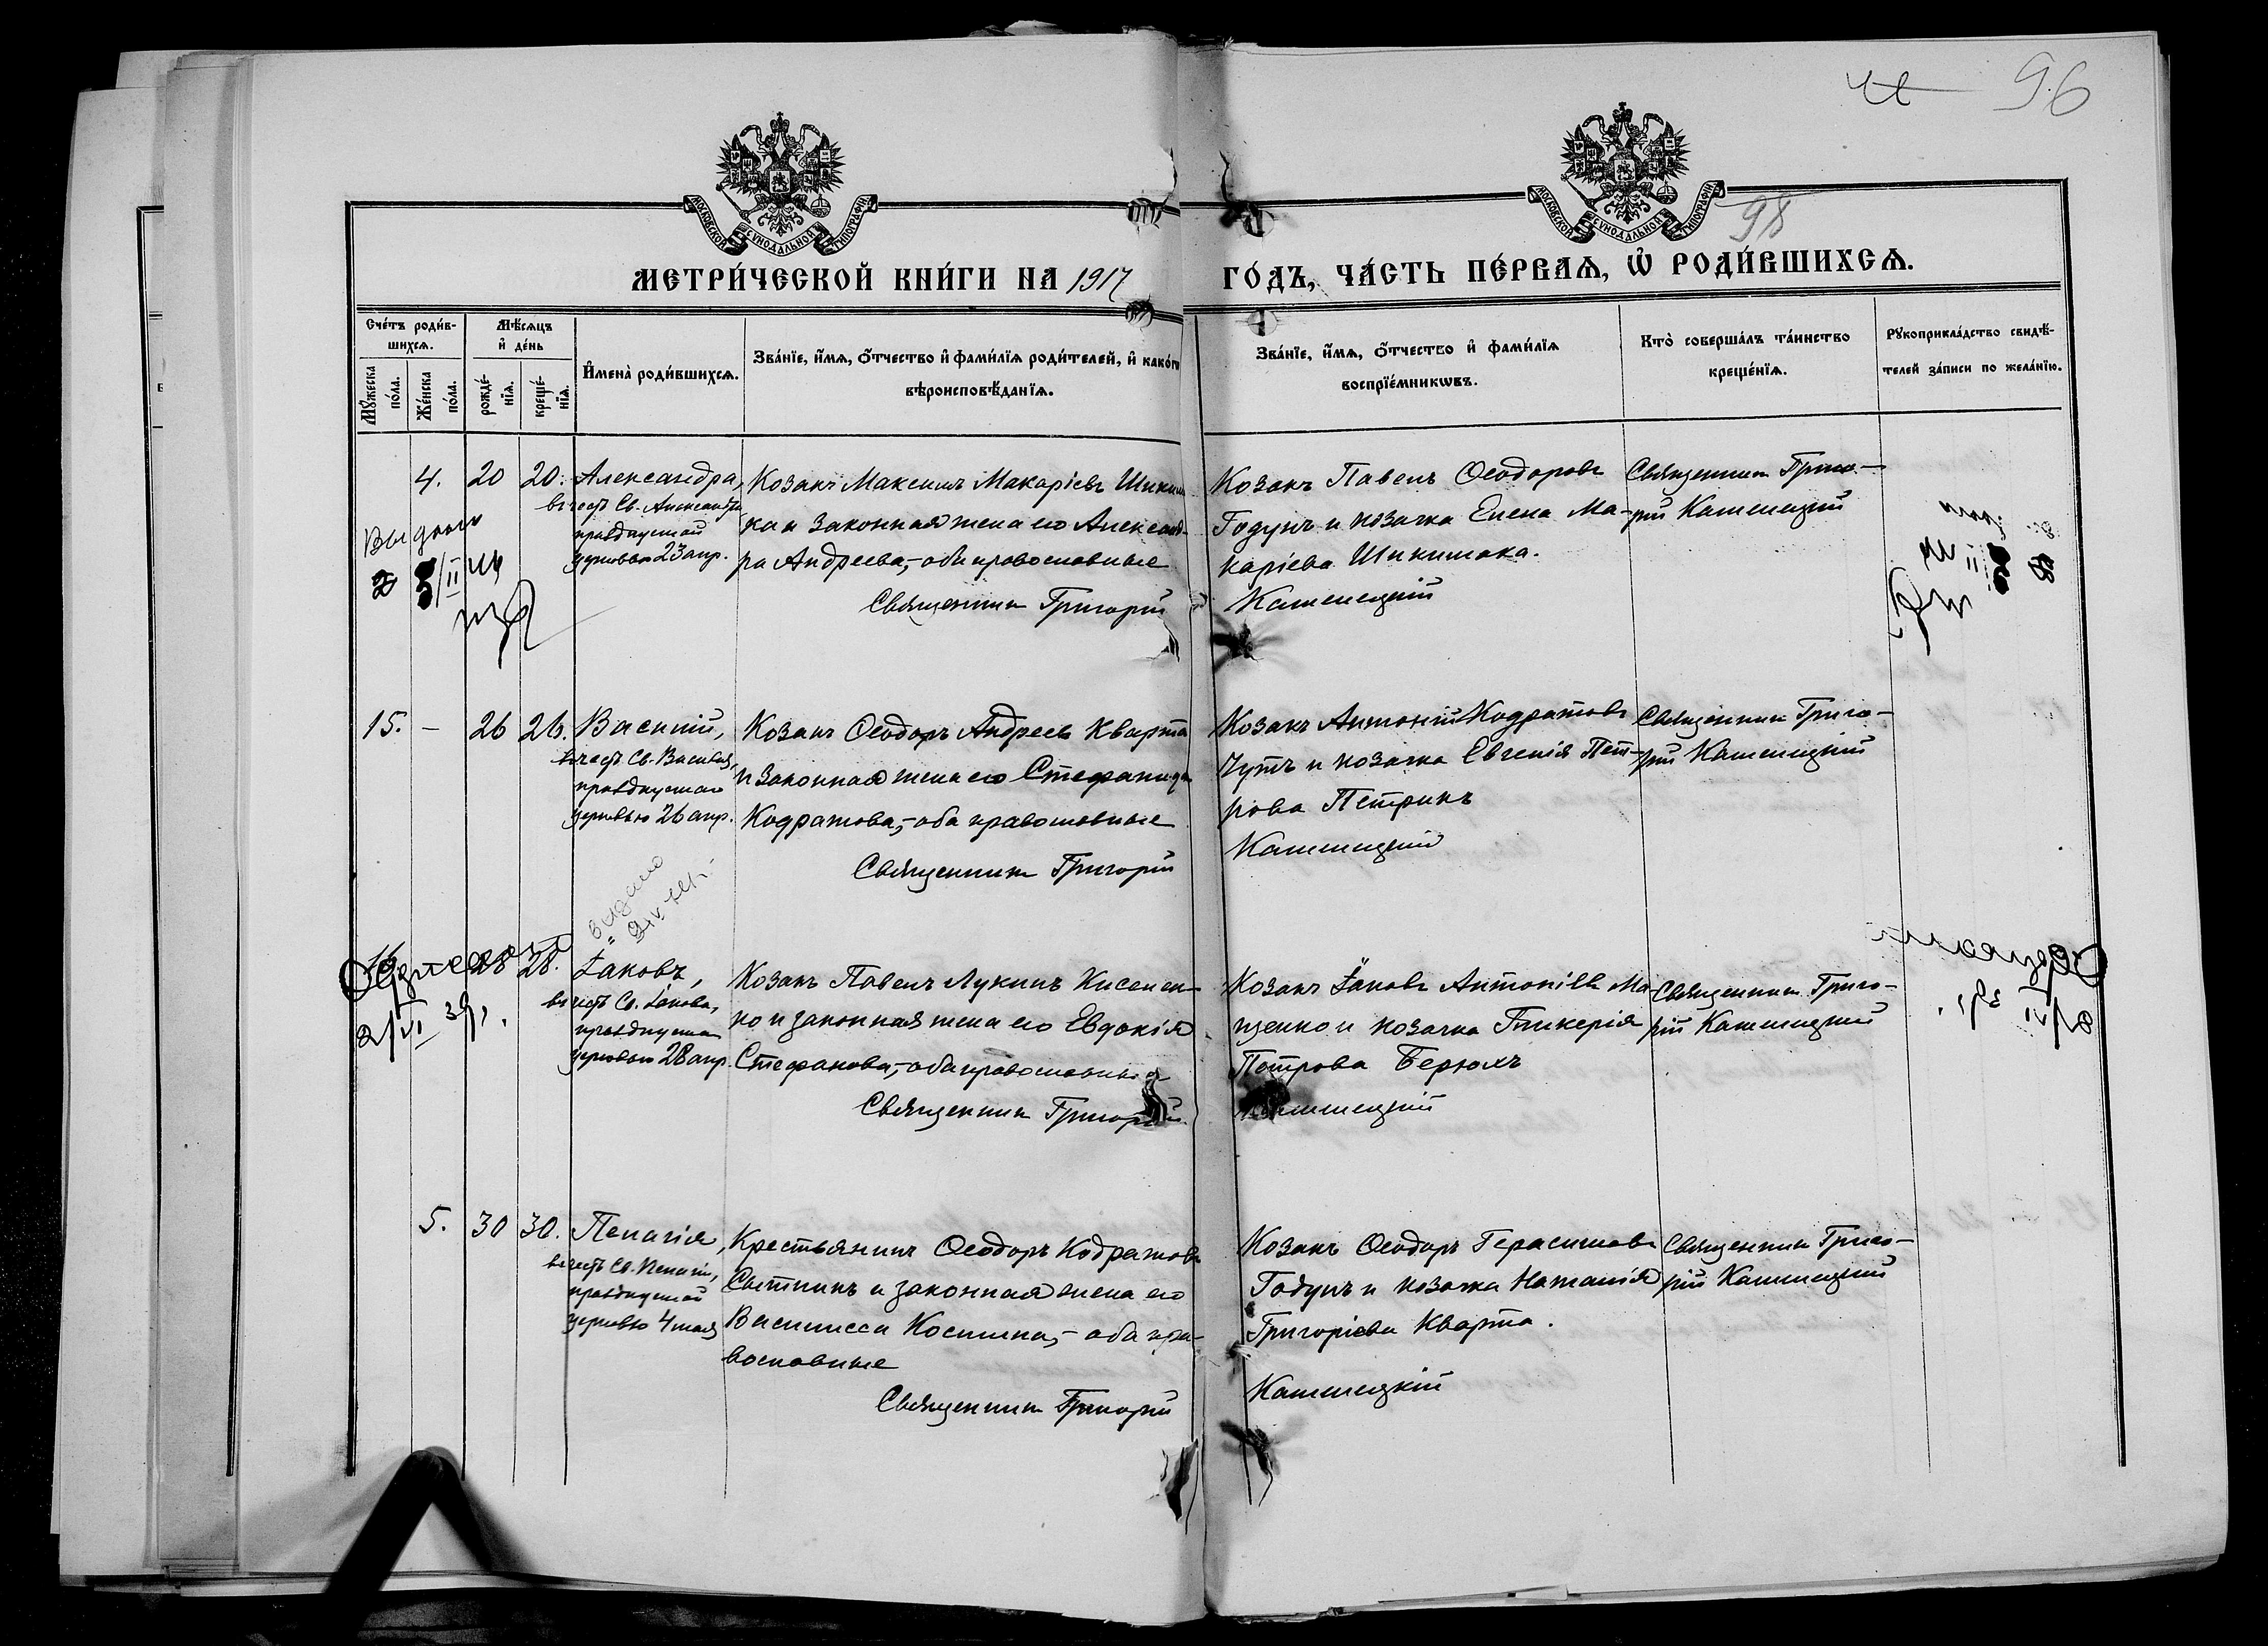 96
98
МОСКОВСКОЙ СѴНОДАЛЬНОЙ ТИПОГРАФІИ
МОСКОВСКОЙ СѴНОДАЛЬНОЙ ТИПОГРАФІИ
МЕТРИ́ЧЕСКОЙ КНИ́ГИ НА 1917 ГО́ДЪ, ЧА́СТЬ ПЕ́РВАѦ, Ѡ҆ РОДИ́ВШИХСѦ.
Счéтъ роди́в-
шихсѧ.
Мѣ́сѧцъ
и҆ де́нь
Мꙋ́жеска
по́ла.
Же́нска
по́ла.
рожде́-
нїѧ.
креще́-
нїѧ.
И҆мена̀ роди́вшихсѧ.
Зва́нїе, и҆́мѧ, ѻ҆́тчество и҆ фами́лїѧ роди́телей, и҆ како́гѡ
вѣроисповѣ́данїѧ.
Зва́нїе, и҆́мѧ, ѻ҆́тчество и҆ фами́лїѧ
воспрїе́мникѡвъ.
Кто̀ соверша́лъ та́инство
креще́нїѧ.
Рꙋкоприкла́дство свидѣ́-
телей за́писи по жела́нїю.
4. 20 20. Александра,
въ честь Св. Александры
празднуемой
церковью 23 апр.
Козакъ Максимъ Макаріевъ
ка и законная жена его Александ-
ра Андреева,- оба православные
Священникъ Григорій
Козакъ Павелъ Ѳеодоровъ
Годунъ и козачка Елена Ма-
каріева Шикимака.
Каменецкій
Священникъ Григо-
рій Каменецкій
15. - 26 26. Василій,
въ честь Св. Василія,
празднуемаго
церковью 26 апр.
Козакъ Ѳеодоръ Андреевъ Кварта
и законная жена его Стефанида
Кодратова,- оба православные
Священникъ Григорій
Козакъ Антоній Кодратовъ
Чутъ и козачка Евгенія Пет-
рова Петрикъ
Каменецкій
Священникъ Григо-
рій Каменецкій
выдано
16. 28 28. Іаковъ,
въ честь Св. Іакова,
церковью 28 апр.
Козакъ Павелъ Лукинъ Киселен-
ко и законная жена его Евдокія
Стефанова,- оба православные
Священникъ Григорій
Козакъ Іаковъ Антоніевъ Ма-
щенко и козачка Гликерія
Петрова Берюхъ
Каменецкій
Священникъ Григо-
рій Каменецкій
5. 30 30. Пелагія,
въ честь Св. Пелагіи,
празднуемой
церковью 4 мая
Крестьянинъ Ѳеодоръ Кодратовъ
Свитникъ и законная жена его
Василисса Космина,- оба пра-
вославные
Священникъ Григорій
Козакъ Ѳеодоръ Герасимовъ
Годунъ и козачка Наталія
Григоріева Кварта.
Каменецкій
Священникъ Григо-
рій Каменецкій